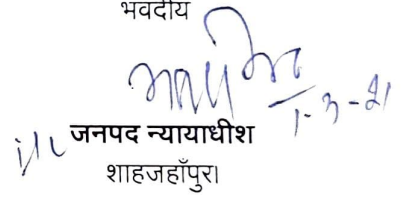 भवदीय
1-3-21
i/c जनपद न्यायाधीश
शाहजहाँपुर।